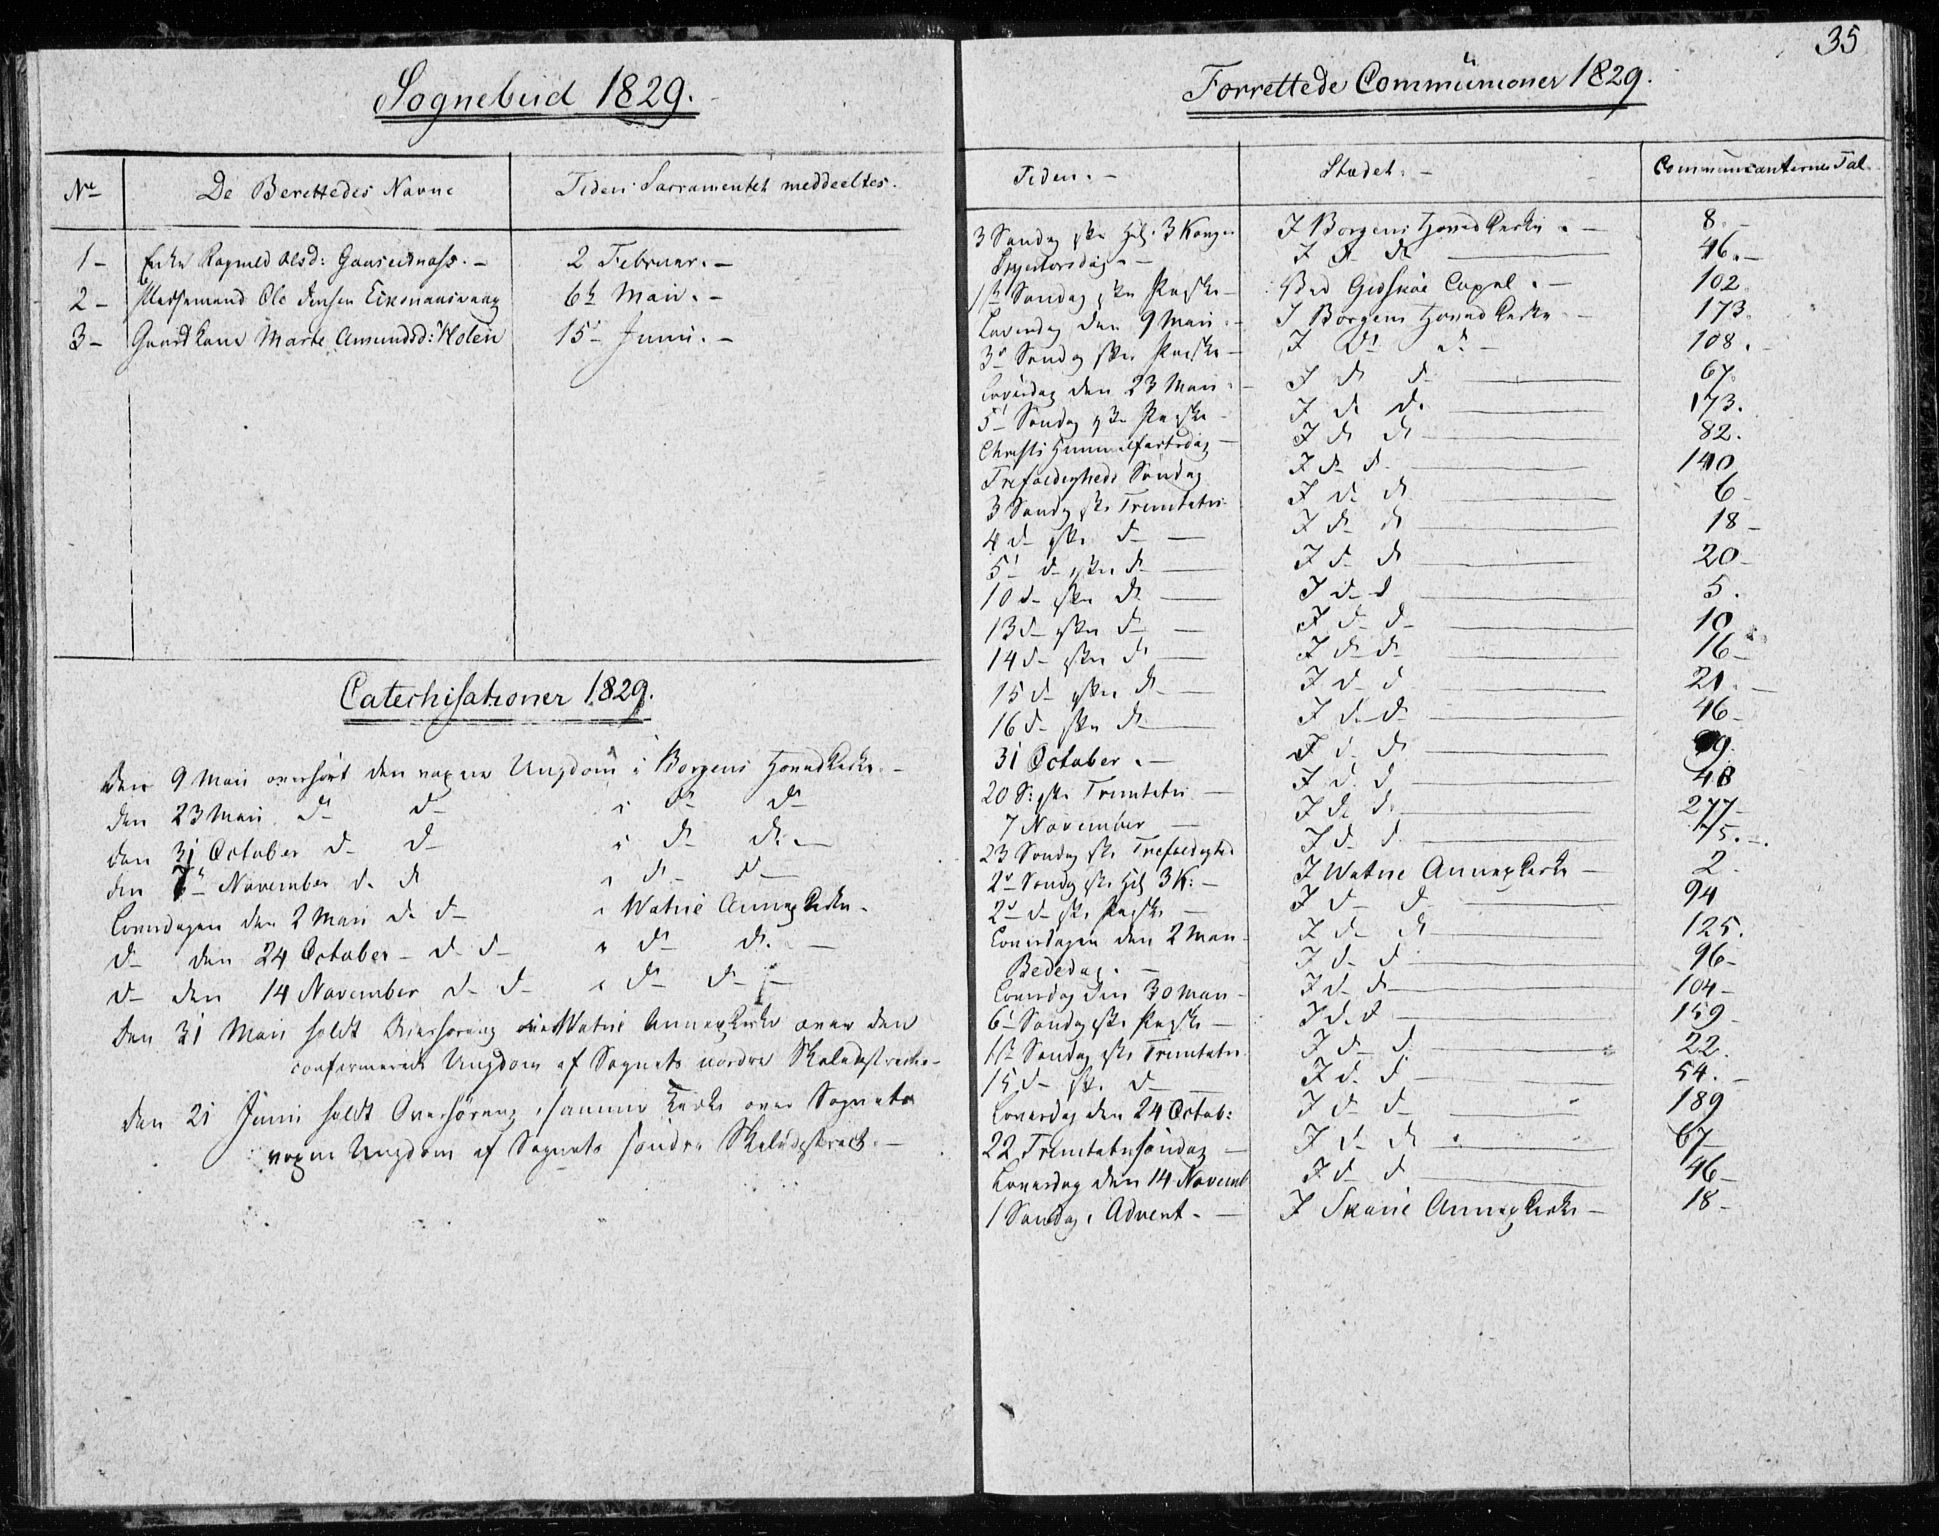 Sognebud 1829.
No De Berettedes Navne Tiden Sacramentet meddeeltes.
1 - Enke Ragnild Olsd: - 2 Februar. -
2 - Ole Jensen 6te Mai. -
3 - Gaardkone Marte Amundsd: Holen 15de Juni. -
Catechisationer 1829.
Den 9 Mai overhört den voxne Ungdom i Borgens Hovedkirke. -
den 23 Mai d- d- i d- d-
den 31 October d- d- i d- d. -
den 7de November d. d i d- d-
Löverdagen den 2 Mai d. d- i Watne Annexkirke.
d- den 24 October - d. d- i d- d. -
d- den 14 November d- d- i d- d- -
Den 31 Mai holdt Overhöring i Watne Annexkirke over den
confirmerede Ungdom af Sognets nordre
den 21 Juni holdt Overhöring i samme Kirke over Sognets
voxne Ungdom af Sognets söndre
35
Forrettede Communioner 1829.
Tiden. - Stædet. - Communicanternes Tal.
3 Söndag efter Hel. 3 Konger I Borgens Hovedkirke. - 8. -
Skjertorsdag. - I d d 46. -
1ste Söndag efter Paaske - Ved Gidsköe Capel. - 102.
Löverdag den 9 Mai. - I Borgens Hovedkirke - 173.
3de Söndag efter Paaske - I d- d. - 108. -
Löverdag den 23 Mai. - I d d- 67.
5te Söndag efter Paaske - I d. d. 173.
Christi Himmelfartsdag - I d d 82.
Trefoldigheds Söndag I d- d. 140
3 Söndag efter Trinitatis I d. d. 6 -
4 d- efter d- - I d- d 18 -
5te d- efter d - I d- d 20 -
10 d- efter d - I d- d 5.
13 d- efter d - I d- d- 10
14 d- efter d - I d- d- 16 -
15 d- efter d - I d- d 21. -
16 d- efter d - I d- d- 46 -
31 October. - I d. d
20 S: efter Trinitatis - I d. d 48
7 November - I d. d. 277 -
23 Söndag efter Trefoldighed I d- d. 75. -
2den Söndag efter Hel 3 K: - I Watne Annexkirke - 2.
2den d- efter Paaske - I d- d- 94
Löverdagen den 2 Mai - I d- d 125.
Bededag. - I d- d 96 -
Löverdag den 30 Mai - I d- d 104 -
6te Söndag efter Paaske - I d. d 159 -
1ste Söndag efter Trinitatis I d- d. 22.
15 d- efter d- - I d. d 54. -
Löverdag den 24 Octob: I d- d- 189
22 Trinitatissöndag - I d- d 67 -
Löverdag den 14 Novemb I d- d 46 -
1 Söndag i Advent. - I Skane Annexkirke - 18 -